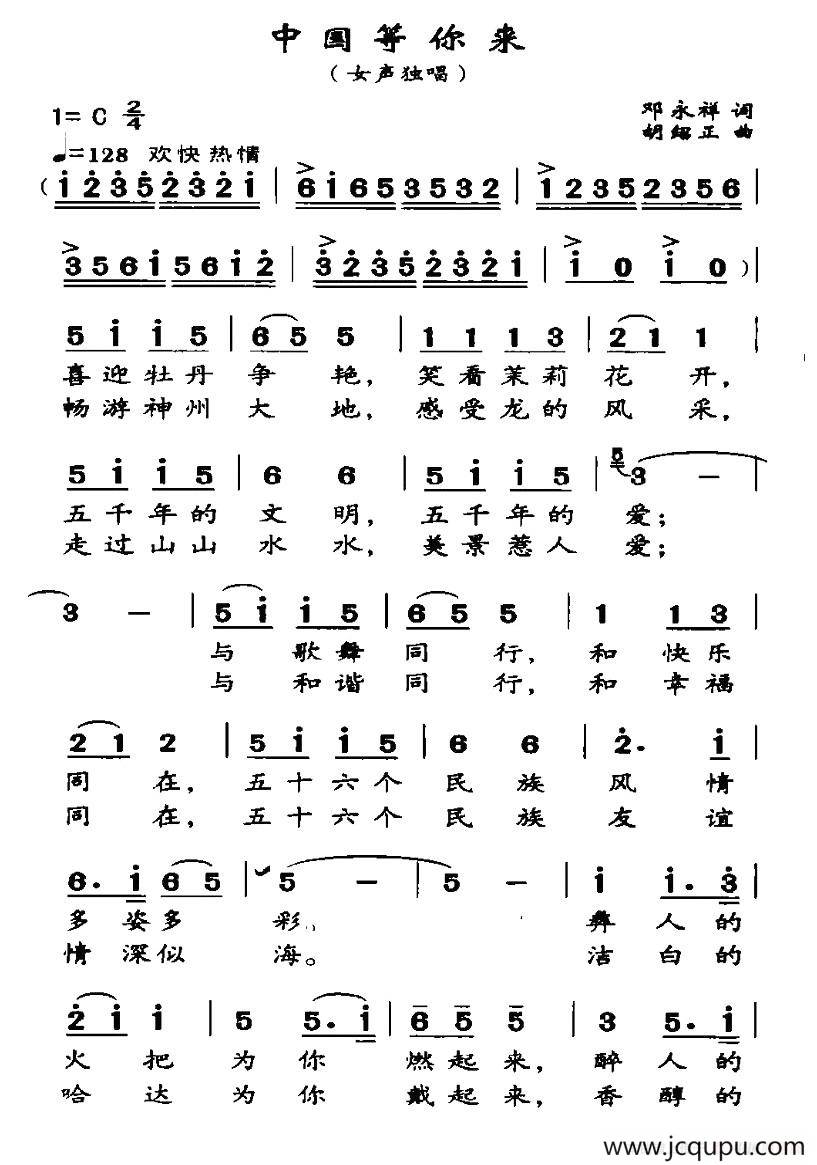 中国等你来
（女声独唱）
1= C 2/4
邓永祥 词
胡绍正 曲
♩=128 欢快 热情
( i̇ 2̇ 3̇ 5̇ 2̇ 3̇ 2̇ i̇ | 6 i̇ 6 5 3 5 3 2 | 1 2 3 5 2 3 5 6 |
3 5 6 i̇ 5 6 i̇ 2̇ | 3̇ 2̇ 3̇ 5̇ 2̇ 3̇ 2̇ i̇ | i̇ 0 i̇ 0 ) |
5 i̇ i̇ 5 | 6 5 5 | 1 1 1 3 | 2 1 1 |
喜迎牡丹争艳，笑看茉莉花开，
畅游神州大地，感受龙的风采，
5 i̇ i̇ 5 | 6 6 | 5 i̇ i̇ 5 | 5 3 － |
五千年的文明，五千年的爱；
走过山山水水，美景惹人爱；
3 － | 5 i̇ i̇ 5 | 6 5 5 | 1 1 3 |
与歌舞同行，和快乐
与和谐同行，和幸福
2 1 2 | 5 i̇ i̇ 5 | 6 6 | 2̇. i̇ |
同在，五十六个民族风情
同在，五十六个民族友谊
6. i̇ 6 5 | 5 － | 5 － | i̇ i̇. 3̇ |
多姿多彩、彝人的
情深似海。洁白的
2̇ i̇ i̇ | 5 5. i̇ | 6 5 5 | 3 5. i̇ |
火把为你燃起来，醉人的
哈达为你戴起来，香醇的
www.jcqupu.com